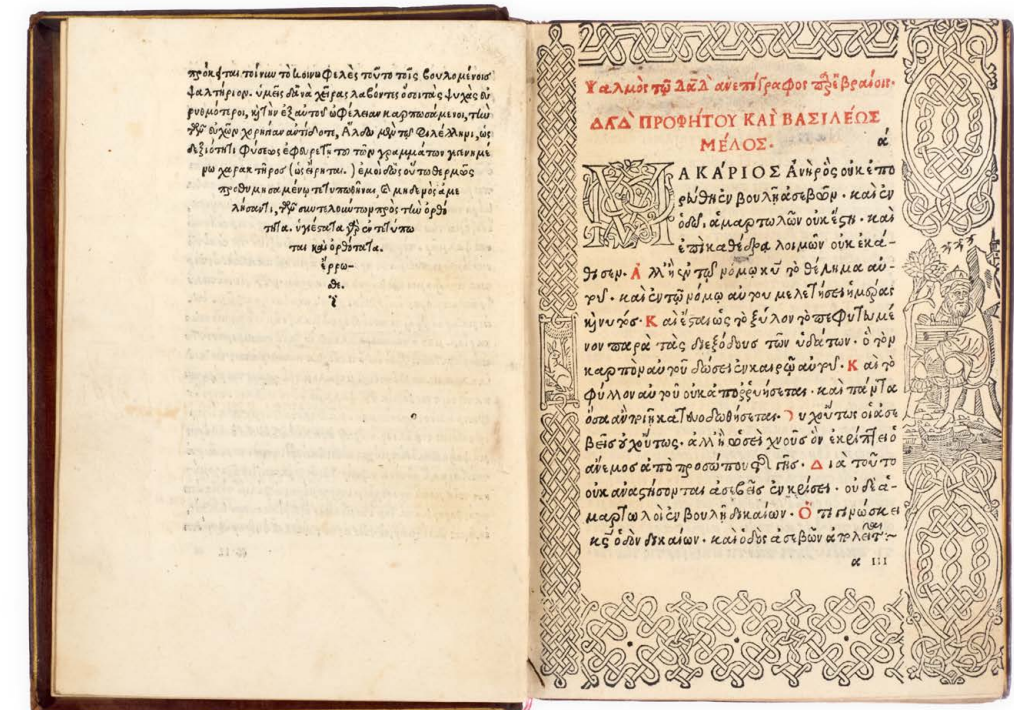 πρόκειται τοίνυν τὸ κοινωφελὲς τοῦτο τοῖς βουλομένοις
ψαλτήριον. ὑμεῖς δ' ἀνὰ χεῖρας λαβόντες ὅσοι τὰς ψυχὰς εὐ
ρυθμότεροι, καὶ τὴν ἐξ αὐτοῦ ὠφέλειαν καρπωσάμενοι, τὴν
τῶν εὐχῶν χάριν ἀντίδοτε, Ἄλδῳ μὲν τῷ φιλέλληνι, ὡς
δεξιότητι φύσεως ἐφευρετῇ τοῦ τῶν γραμμάτων γενημέ
νῳ χαρακτῆρος (ὡς εἴρηται.) ἐμοὶ δ' ὡς οὕτω θερμῶς
προθυμησαμένῳ τετυπωθῆναι, καὶ μηδενὸς ἀμε
λήσαντι, τῶν συντελούντων πρὸς τὴν ὀρθό
τητα. ὑγιέστατα γὰρ ἐντετύπω
ται καὶ ὀρθότατα.
ἔρρω-
σθε.
Ψαλμὸς τῷ Δα̅δ̅ ἀνεπίγραφος παρ' ἑβραίοις.
ΔΑΔ ΠΡΟΦΉΤΟΥ ΚΑῚ ΒΑΣΙΛΈΩΣ
ΜΈΛΟΣ. ά
ΜΑΚΆΡΙΟΣ Ἀνὴρ ὃς οὐκ ἐπο
ρεύθη ἐν βουλῇ ἀσεβῶν· καὶ ἐν
ὁδῷ, ἁμαρτωλῶν οὐκ ἔστη· καὶ
ἐπὶ καθέδρα λοιμῶν οὐκ ἐκά-
θισεν. Ἀλλ' ἢ ἐν τῷ νόμῳ κυ̅ τὸ θέλημα αὐ-
τοῦ· καὶ ἐν τῷ νόμῳ αὐτοῦ μελετήσει ἡμέρας
καὶ νυκτός. Καὶ ἔσται ὡς τὸ ξύλον τὸ πεφυτευμέ
νον παρὰ τὰς διεξόδους τῶν ὑδάτων. ὃ τὸν
καρπὸν αὐτοῦ δώσει ἐν καιρῷ αὐτοῦ. Καὶ τὸ
φύλλον αὐτοῦ οὐκ ἀπορρυήσεται· καὶ πάντα
ὅσα ἂν ποιῇ κατευοδωθήσεται. Οὐχ οὕτως οἱ ἀσε
βεῖς οὐχ οὕτως· ἀλλ' ἢ ὡσεὶ χνοῦς ὃν ἐκρίπτει ὁ
ἄνεμος ἀπὸ προσώπου τῆς γῆς. Διὰ τοῦτο
οὐκ ἀναστήσονται ἀσεβεῖς ἐν κρίσει· οὐδὲ ἁ-
μαρτωλοὶ ἐν βουλῇ δικαίων. Ὅτι γινώσκει
κς̅ ὁδὸν δικαίων· καὶ ὁδὸς ἀσεβῶν ἀπολεῖται
α III